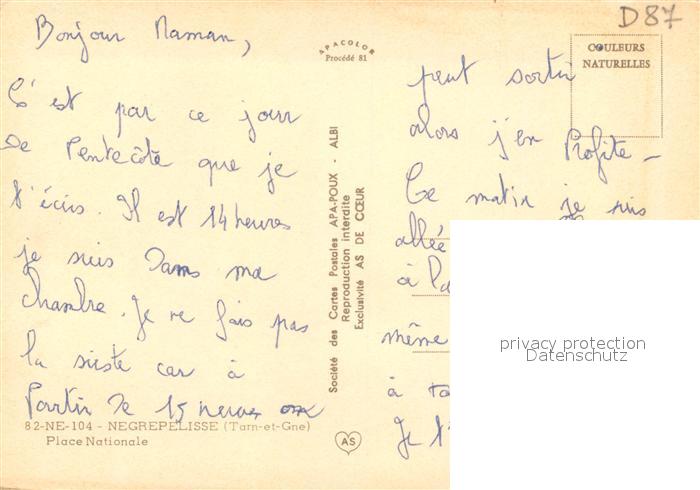 D87
Bonjour Maman,
C'est par ce jour
de Pentecôte que je
t'écris. Il est 14 heures
je suis dans ma
chambre. Je ne fais pas
la sieste car à
Partir de 15 heures on
peut sortir
alors j'en Profite -
Ce matin je suis
allée
à la
même
à ta
Je t'
APACOLOR
Procédé 81
COULEURS
NATURELLES
Société des Cartes Postales APA-POUX - ALBI
Reproduction interdite
Exclusivité AS DE CŒUR
82-NE-104 - NEGREPELISSE (Tarn-et-Gne)
Place Nationale
AS
privacy protection
Datenschutz